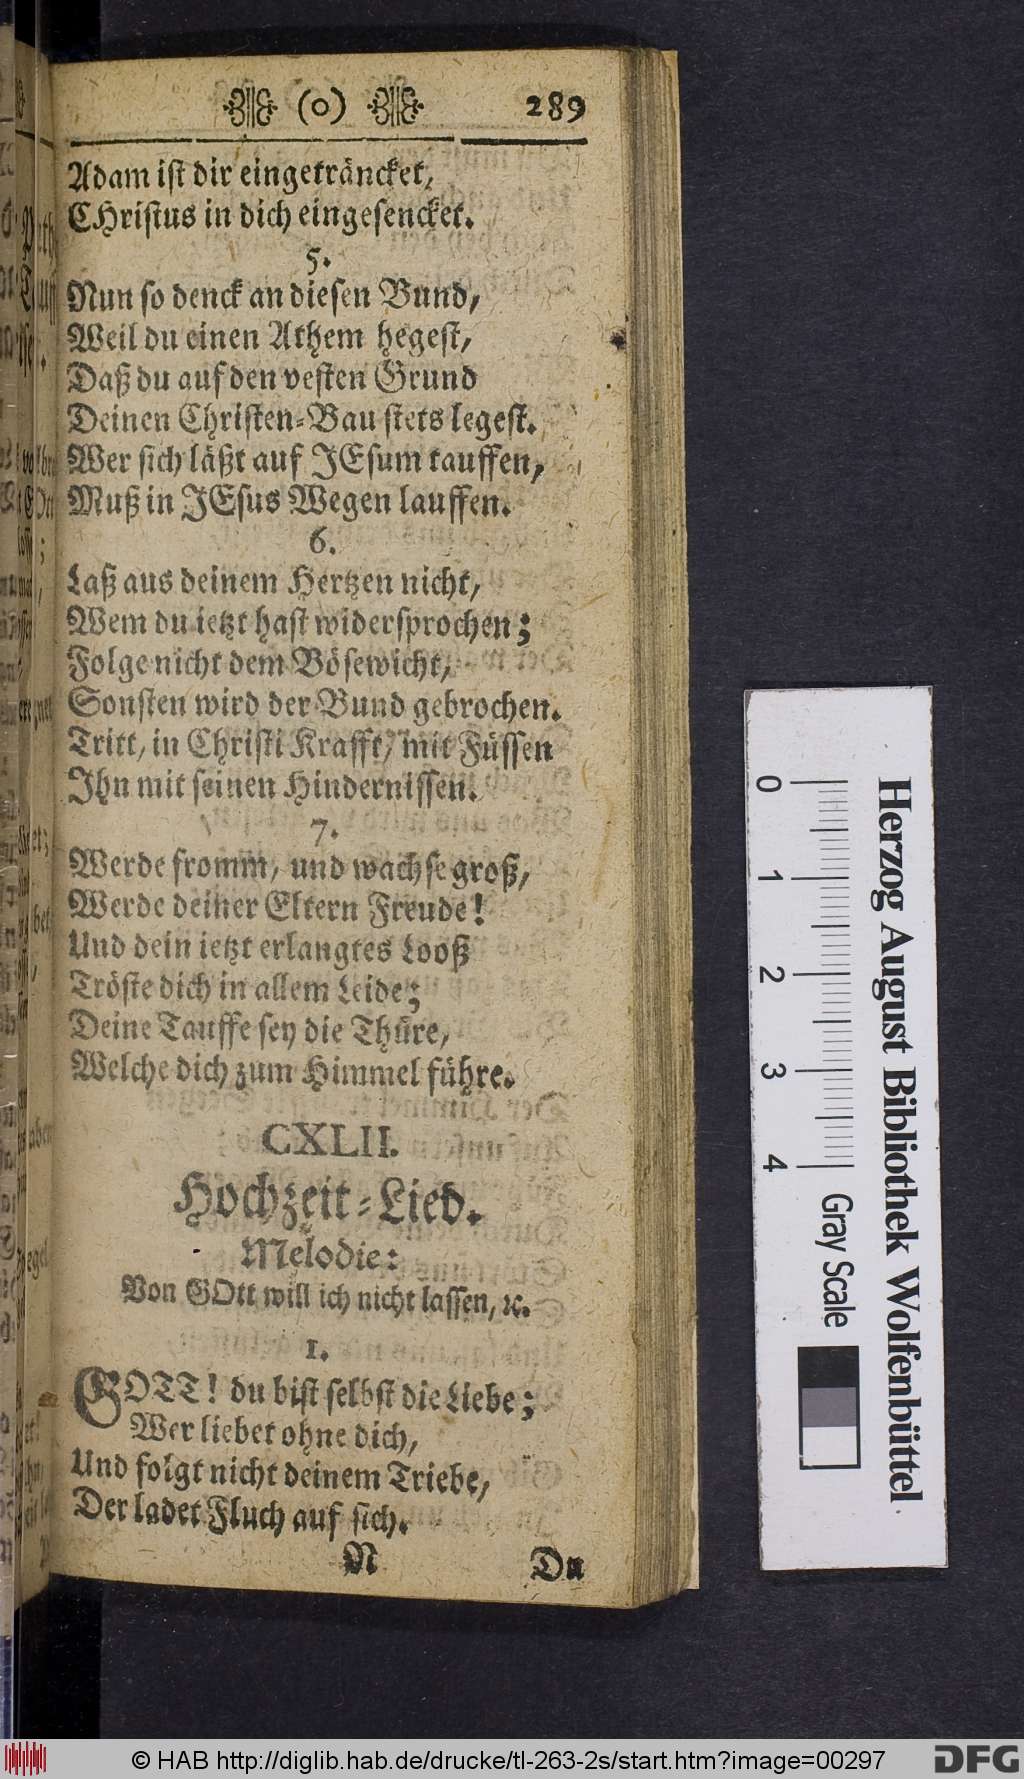 (o) 289
Adam ist dir eingeträncket,
CHristus in dich eingesencket.
5.
Nun so denck an diesen Bund,
Weil du einen Athem hegest,
Daß du auf den vesten Grund
Deinen Christen-Bau stets legest.
Wer sich läßt auf JEsum tauffen,
Muß in JEsus Wegen lauffen.
6.
Laß aus deinem Hertzen nicht,
Wem du ietzt hast widersprochen;
Folge nicht dem Bösewicht,
Sonsten wird der Bund gebrochen.
Tritt, in Christi Krafft, mit Füssen
Ihn mit seinen Hindernissen.
7.
Werde fromm, und wachse groß,
Werde deiner Eltern Freude!
Und dein ietzt erlangtes Looß
Tröste dich in allem Leide;
Deine Tauffe sey die Thüre,
Welche dich zum Himmel führe.
CXLII.
Hochzeit-Lied.
Melodie:
Von GOtt will ich nicht lassen, ꝛc.
1.
GOTT! du bist selbst die Liebe;
Wer liebet ohne dich,
Und folgt nicht deinem Triebe,
Der ladet Fluch auf sich.
N Du
Herzog August Bibliothek Wolfenbüttel
0 1 2 3 4 Gray Scale
© HAB http://diglib.hab.de/drucke/tl-263-2s/start.htm?image=00297 DFG